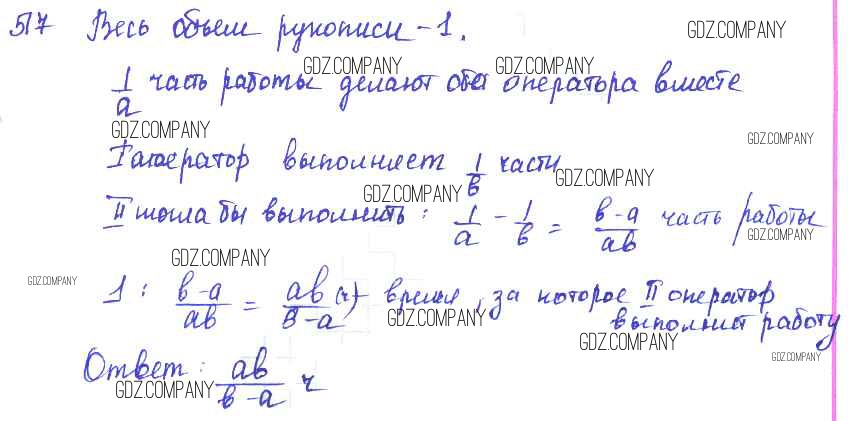 517 Весь объем рукописи - 1. GDZ.COMPANY
GDZ.COMPANY GDZ.COMPANY
1/a часть работы делают оба оператора вместе
GDZ.COMPANY GDZ.COMPANY
I оператор выполняет 1/b части
GDZ.COMPANY GDZ.COMPANY
II могла бы выполнить: 1/a - 1/b = b-a/ab часть работы
GDZ.COMPANY
GDZ.COMPANY
GDZ.COMPANY
1 : b-a/ab = ab/b-a (ч) - время, за которое II оператор
GDZ.COMPANY выполнит работу
GDZ.COMPANY
Ответ: ab/b-a ч GDZ.COMPANY
GDZ.COMPANY